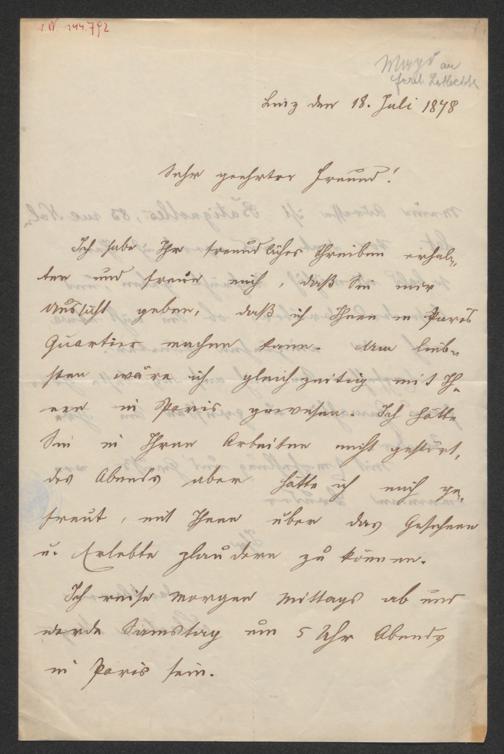 I.N. 144.792
an
Linz den 18. Juli 1878
Sehr geehrter Freund!
Ich habe Ihr freundliches Schreiben erhal-
ten und freue mich, daß Sie mir
Aussicht geben, daß ich Ihnen in Paris
Quartier machen kann. Am lieb-
sten wäre ich gleichzeitig mit Ih-
nen in Paris gewesen. Ich hätte
Sie in Ihren Arbeiten nicht gestört,
des Abends aber hätte ich mich ge-
freut, mit Ihnen über das Gesehene
u. Erlebte plaudern zu können.
Ich reise morgen Mittags ab und
werde Samstag um 5 Uhr Abends
in Paris sein.